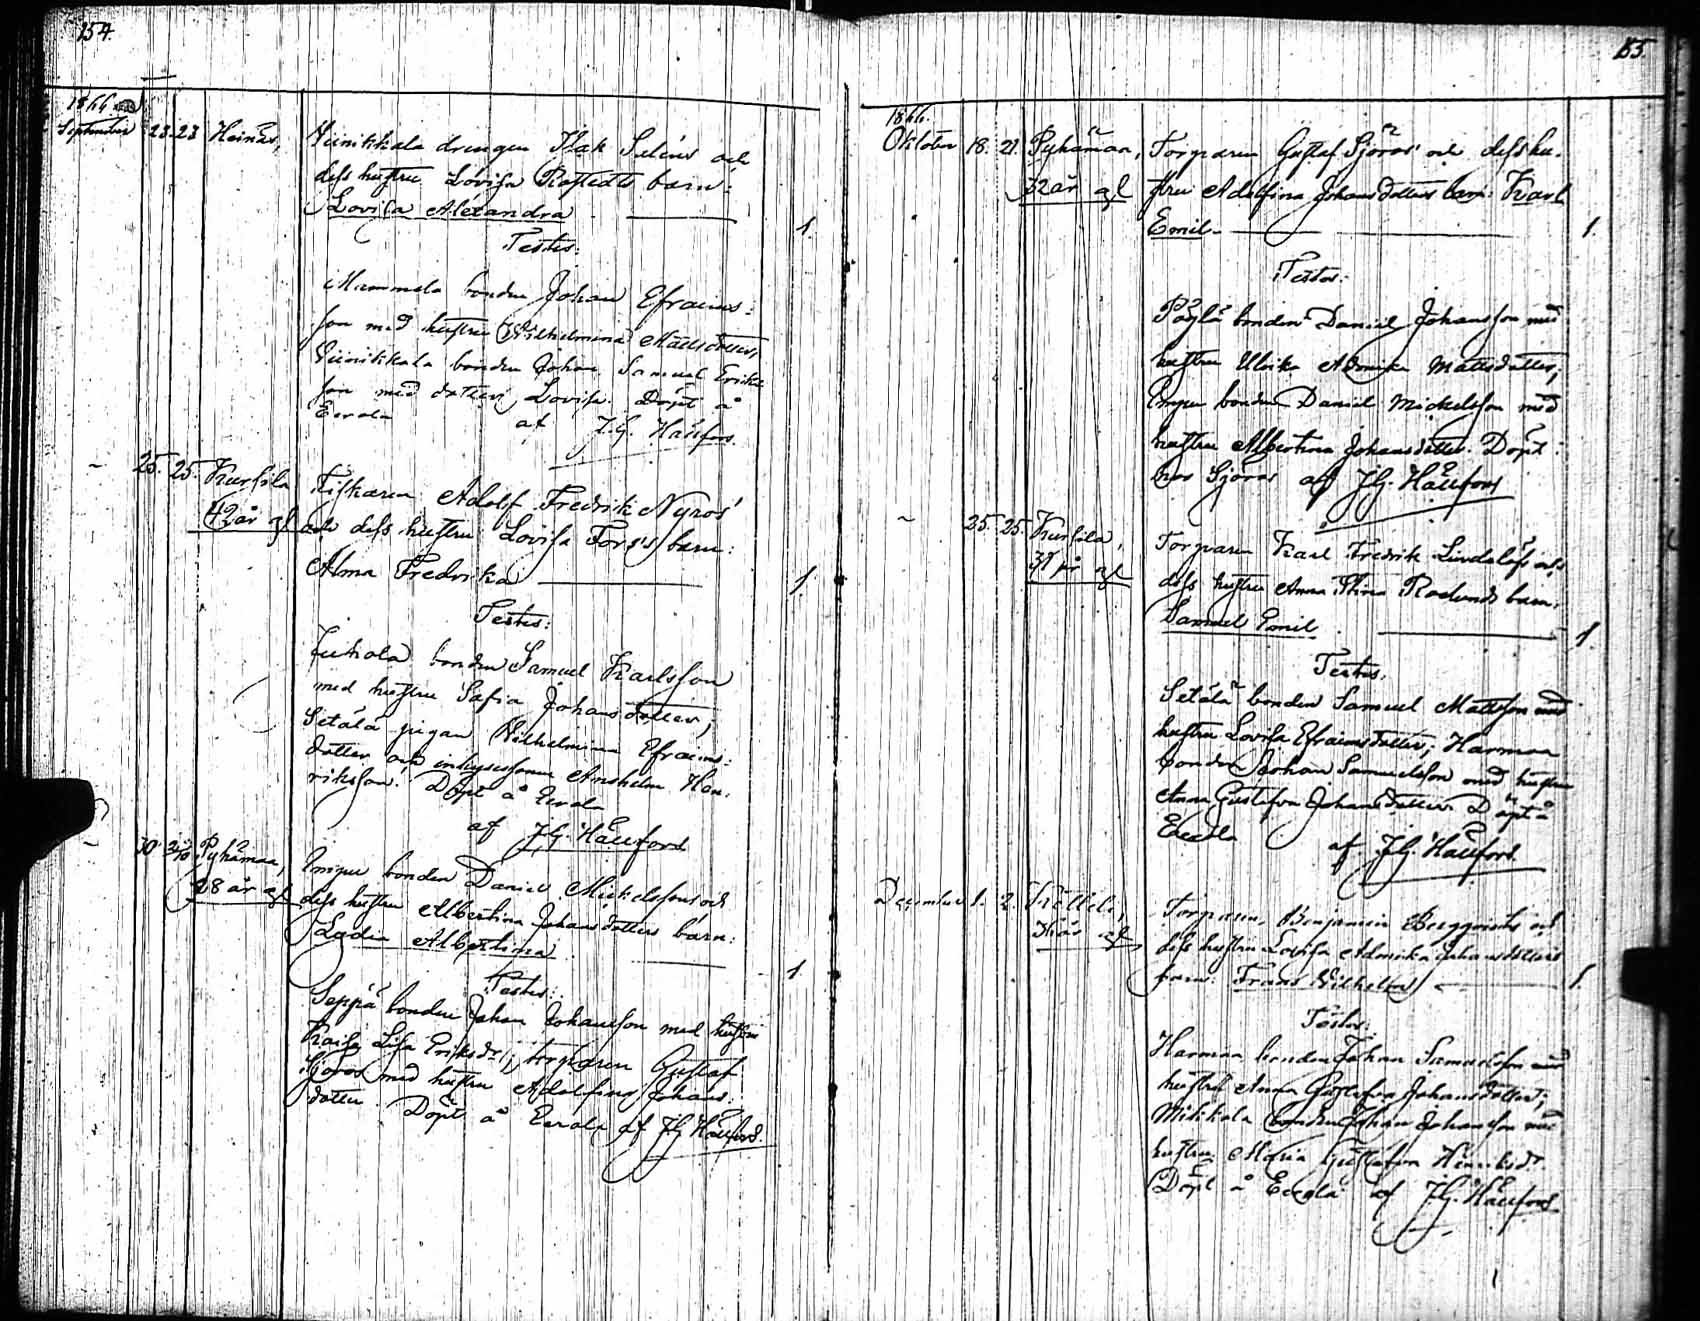 154.
1866
September 23. 23 Heinäs, Viinikkala drengen Isak Seléns och
dess hustru Lovisa Rostedts barn:
Lovisa Alexandra 1.
Testes:
Mammela bonden Johan Efraims-
son med hustru Wilhelmina Mattsdotter,
Viinikkala bonden Johan Samuel Eriks
son med dotter Lovisa. Döpt å
Eerola af J.G. Hällfors.
25. 25. Kursila Fiskaren Adolf Fredrik Nyros'
42 år gl och dess hustru Lovisa Fors's barn:
Alma Fredrika 1.
Testes:
Juhola bonden Samuel Karlsson
med hustru Sofia Johansdotter;
Setälä pigan Wilhelmina Efraims-
dotter och inhysessonen Anshelm Hen-
riksson. Döpt å Eerola
af J.G. Hällfors
30. 2/10 Pyhämaa, Impu bonden Daniel Mickelssons och
28 år gl dess hustru Albertina Johansdotters barn:
Ladia Albertina 1.
Testes:
Seppä bonden Johan Johansson med hustru
Kaisa Lisa Eriksdr; torparen Gustaf
Sjöros med hustru Adolfina Johans-
dotter. Döpt å Eerola af J.G. Hällfors.
155.
1866.
Oktober 18. 21. Pyhämaa, Torparen Gustaf Sjöros' och dess hu-
32 år gl stru Adolfina Johansdotters barn: Karl
Emil 1.
Testes:
bonden Daniel Johansson med
hustru Ulrika Mattsdotter,
Impu bonden Daniel Mickelsson med
hustru Albertina Johansdotter. Döpt
hos Sjöros af J.G. Hällfors
25. 25. Kursila, Torparen Karl Fredrik Lindelöfs och
år gl dess hustru Anna Stina Roslunds barn:
Samuel Emil 1
Testes.
Setälä bonden Samuel Mattsson med
hustru Lovisa Efraimsdotter; Harmaa
bonden Johan Samuelsson med hustru
Anna Gustafva Johansdotter. Döpt å
Eerola af J.G. Hällfors.
December 1. 2. Torparen Benjamin Bergqvists och
år gl dess hustru Lovisa Johansdotters
barn: Frans Wilhelm 1.
Testes:
Harmaa bonden Johan Samuelsson med
hustru Anna Gustafva Johansdotter;
Mikkola bonden Johan Johansson med
hustru Maria Gustafva Henriksdr.
Döpt å Eerola af J.G. Hällfors